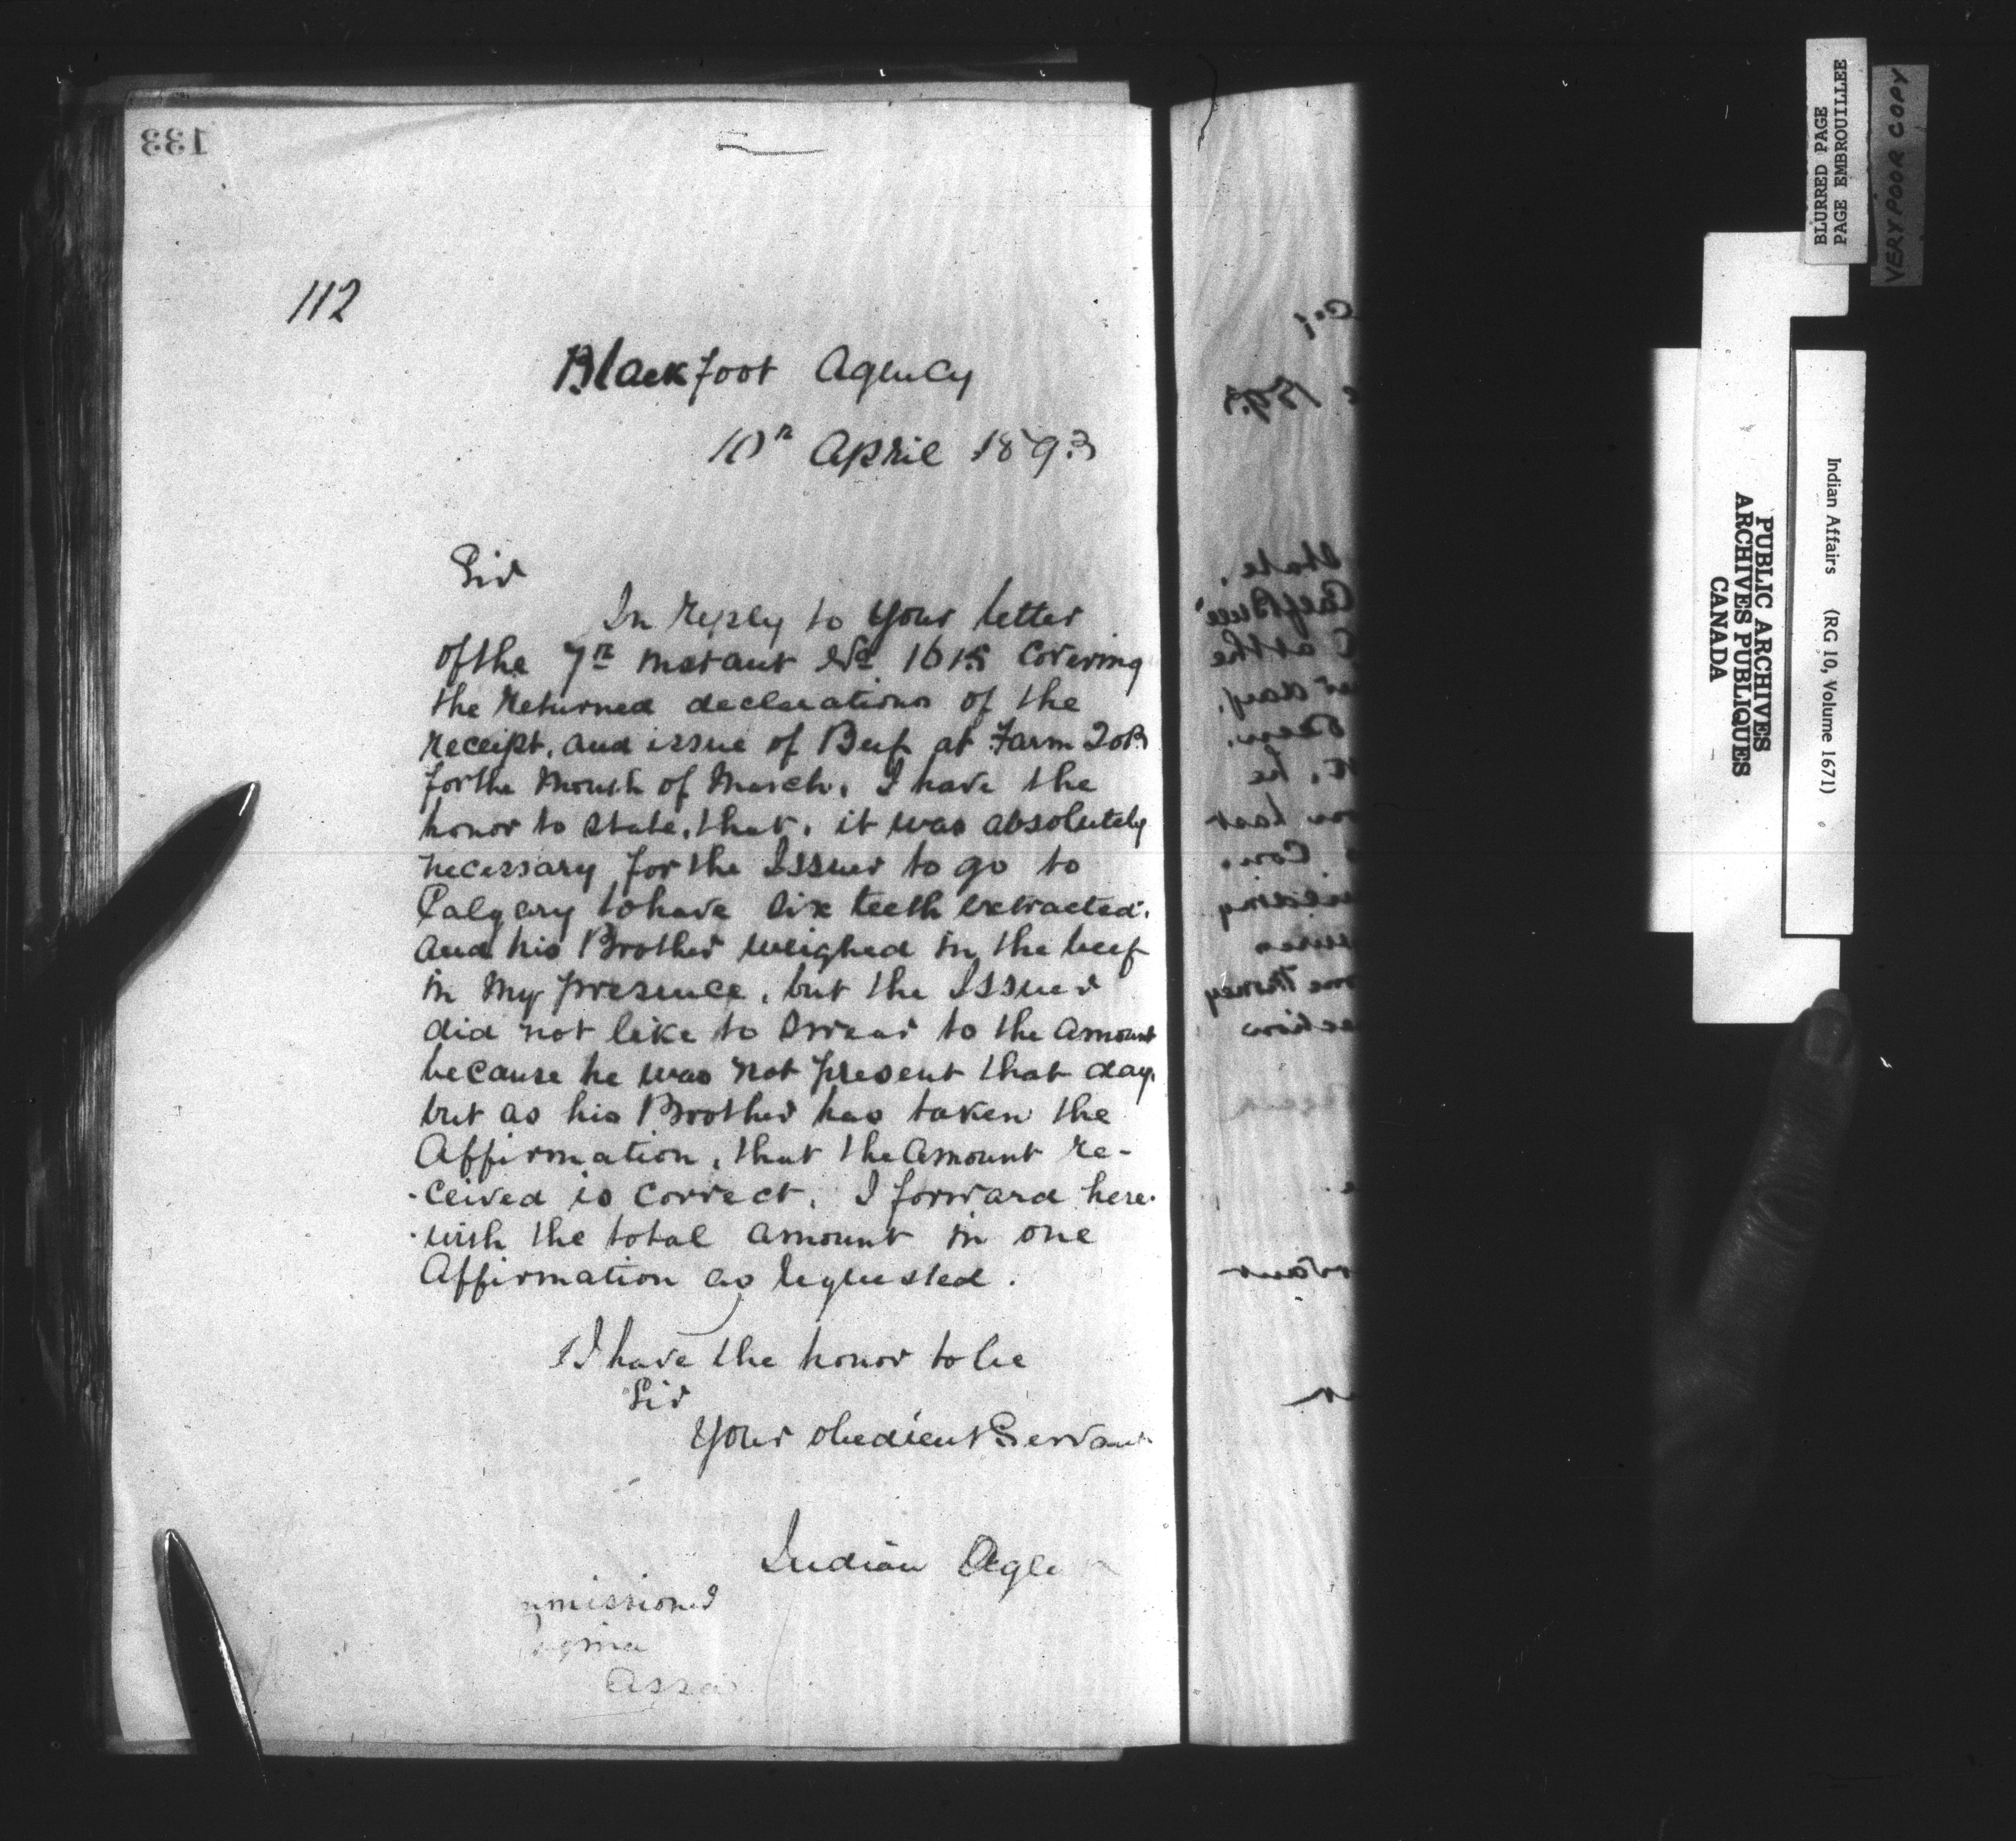 133
112
Blackfoot Agency
10th April 1893
Sir
In reply to your letter
of the 7th instant No 1615 covering
the returned declarations of the
receipt, and issue of Beef at Farm 20B
for the Month of March, I have the
honor to state, that, it was absolutely
necessary for the Issuer to go to
Calgary to have six teeth extracted,
and his Brother weighed in the beef
in my presence, but the Issuer
did not like to swear to the amount
because he was not present that day,
but as his Brother has taken the
Affirmation, that the amount re-
ceived is correct, I forward here-
-with the total amount in one
Affirmation as requested.
I have the honor to be
Sir
Your obedient Servant
Indian Age
mmissioner
egina
Assa
1893
state.
at the
day.
he
BLURRED PAGE
PAGE EMBROUILLEE
VERY POOR COPY
PUBLIC ARCHIVES
ARCHIVES PUBLIQUES
CANADA
Indian Affairs (RG 10, Volume 1671)